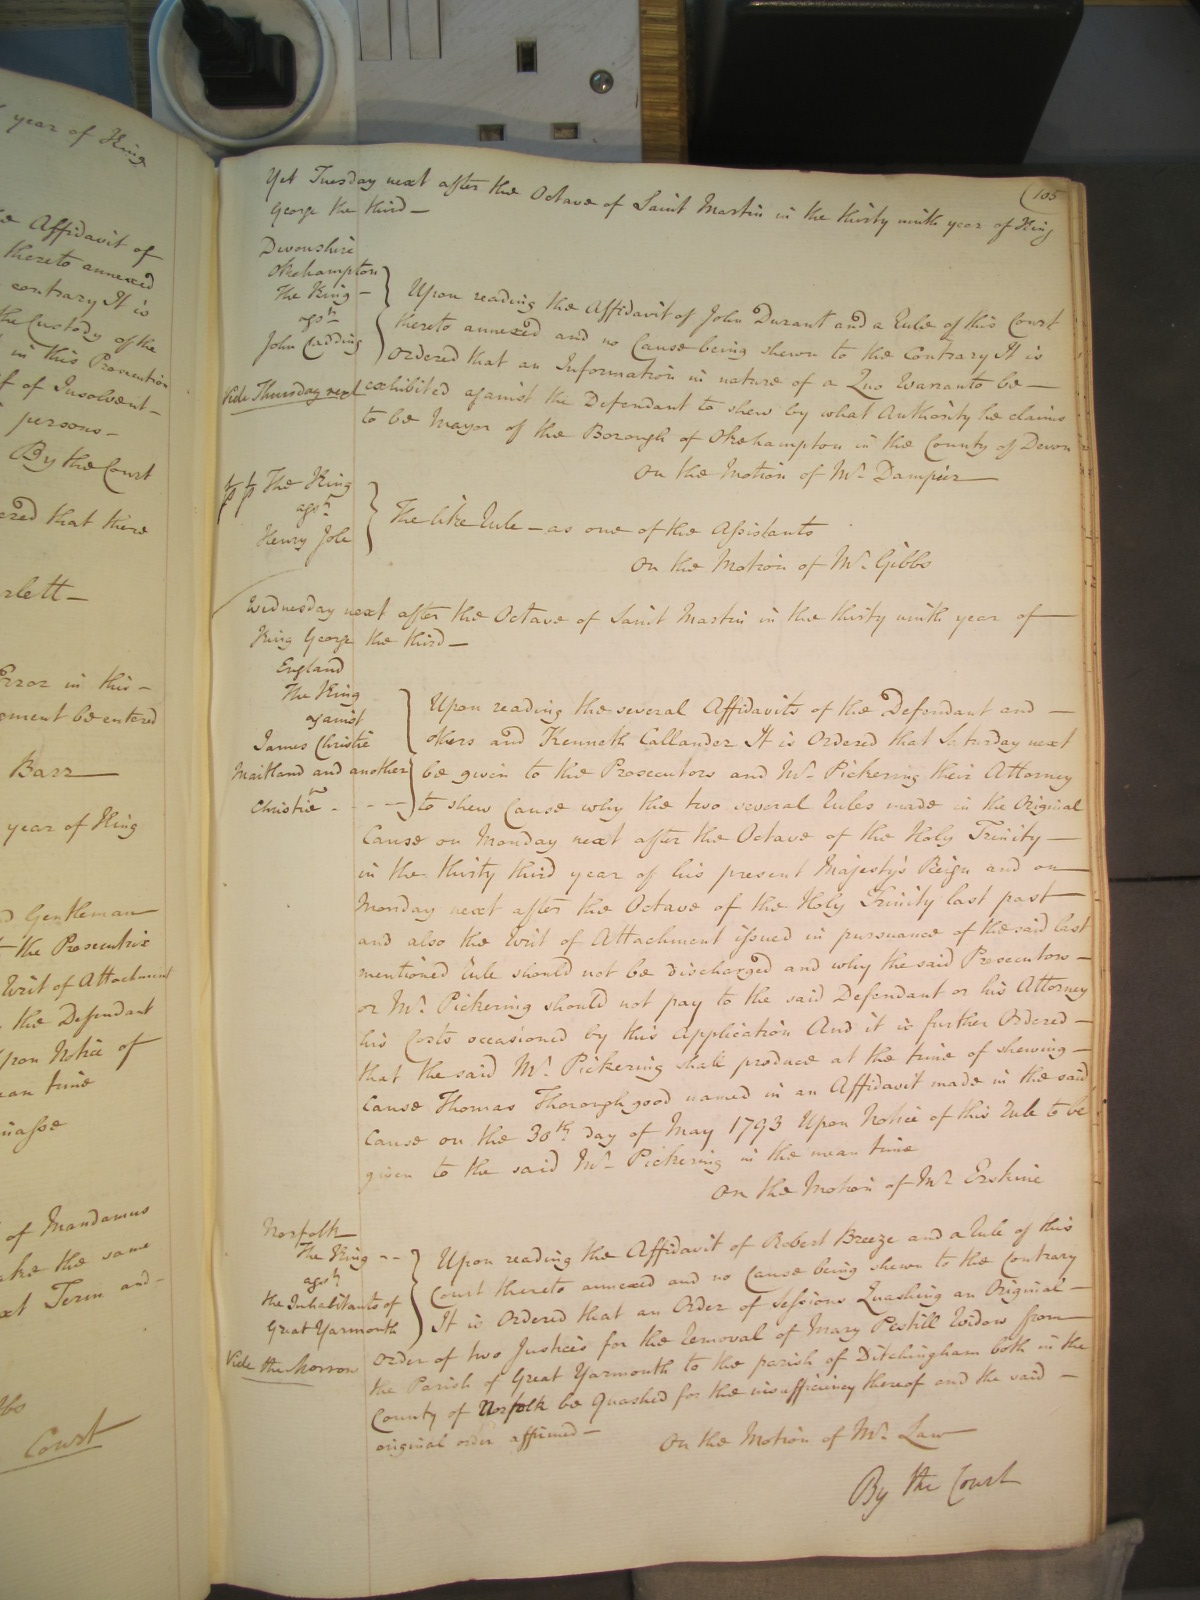 year of King
e Affidavit of
thereto annexed
contrary It is
the Custody of the
in this Prosecution
of Insolvent -
persons -
By the Court
ered that there
rlett -
Error in this -
gment be entered
Barr
year of King
d Gentleman
the Prosecutrix
Writ of Attachment
the Defendant
Upon Notice of
ean time
of Mandamus
ake the same
xt Term and -
Court
(105
Yet Tuesday next after the Octave of Saint Martin in the thirty ninth year of King
George the third -
Devonshire
Okehampton
The King -
agst
John Cadding
Vide Thursday next
Upon reading the Affidavit of John Durant and a Rule of this Court
thereto annexed and no Cause being shewn to the Contrary It is
Ordered that an Information in nature of a Quo Warranto be -
exhibited against the Defendant to shew by what Authority he claims
to be Mayor of the Borough of Okehampton in the County of Devon
On the Motion of Mr. Dampier
The King
agst
Henry Jole
The like Rule - as one of the Assistants
On the Motion of Mr. Gibbs
Wednesday next after the Octave of Saint Martin in the thirty ninth year of -
King George the third -
England
The King
against
James Christie
Maitland and another
v
Christie - - - -
Upon reading the several Affidavits of the Defendant and -
others and Kenneth Callander It is Ordered that Saturday next
be given to the Prosecutors and Mr. Pickering their Attorney
to shew Cause why the two several Rules made in the Original
Cause on Monday next after the Octave of the Holy Trinity -
in the thirty third year of his present Majesty's Reign and on
Monday next after the Octave of the Holy Trinity last past
and also the Writ of Attachment issued in pursuance of the said last
mentioned Rule should not be discharged and why the said Prosecutors -
or Mr. Pickering should not pay to the said Defendant or his Attorney
his Costs occasioned by this Application And it is further Ordered -
that the said Mr. Pickering shall produce at the time of shewing -
Cause Thomas Thoroughgood named in an Affidavit made in the said
Cause on the 30th day of May 1793 Upon Notice of this Rule to be
given to the said Mr. Pickering in the mean time
On the Motion of Mr. Erskine
Norfolk
The King - -
agst
the Inhabitants of
Great Yarmouth
Vide the Morrow
Upon reading the Affidavit of Robert Breeze and a Rule of this
Court thereto annexed and no Cause being shewn to the Contrary
It is Ordered that an Order of Sessions Quashing an Original -
Order of two Justices for the Removal of Mary Pestill Widow from
the Parish of Great Yarmouth to the parish of Ditchingham both in the
County of Norfolk be Quashed for the insufficiency thereof and the said -
original order affirmed -
On the Motion of Mr. Law
By the Court